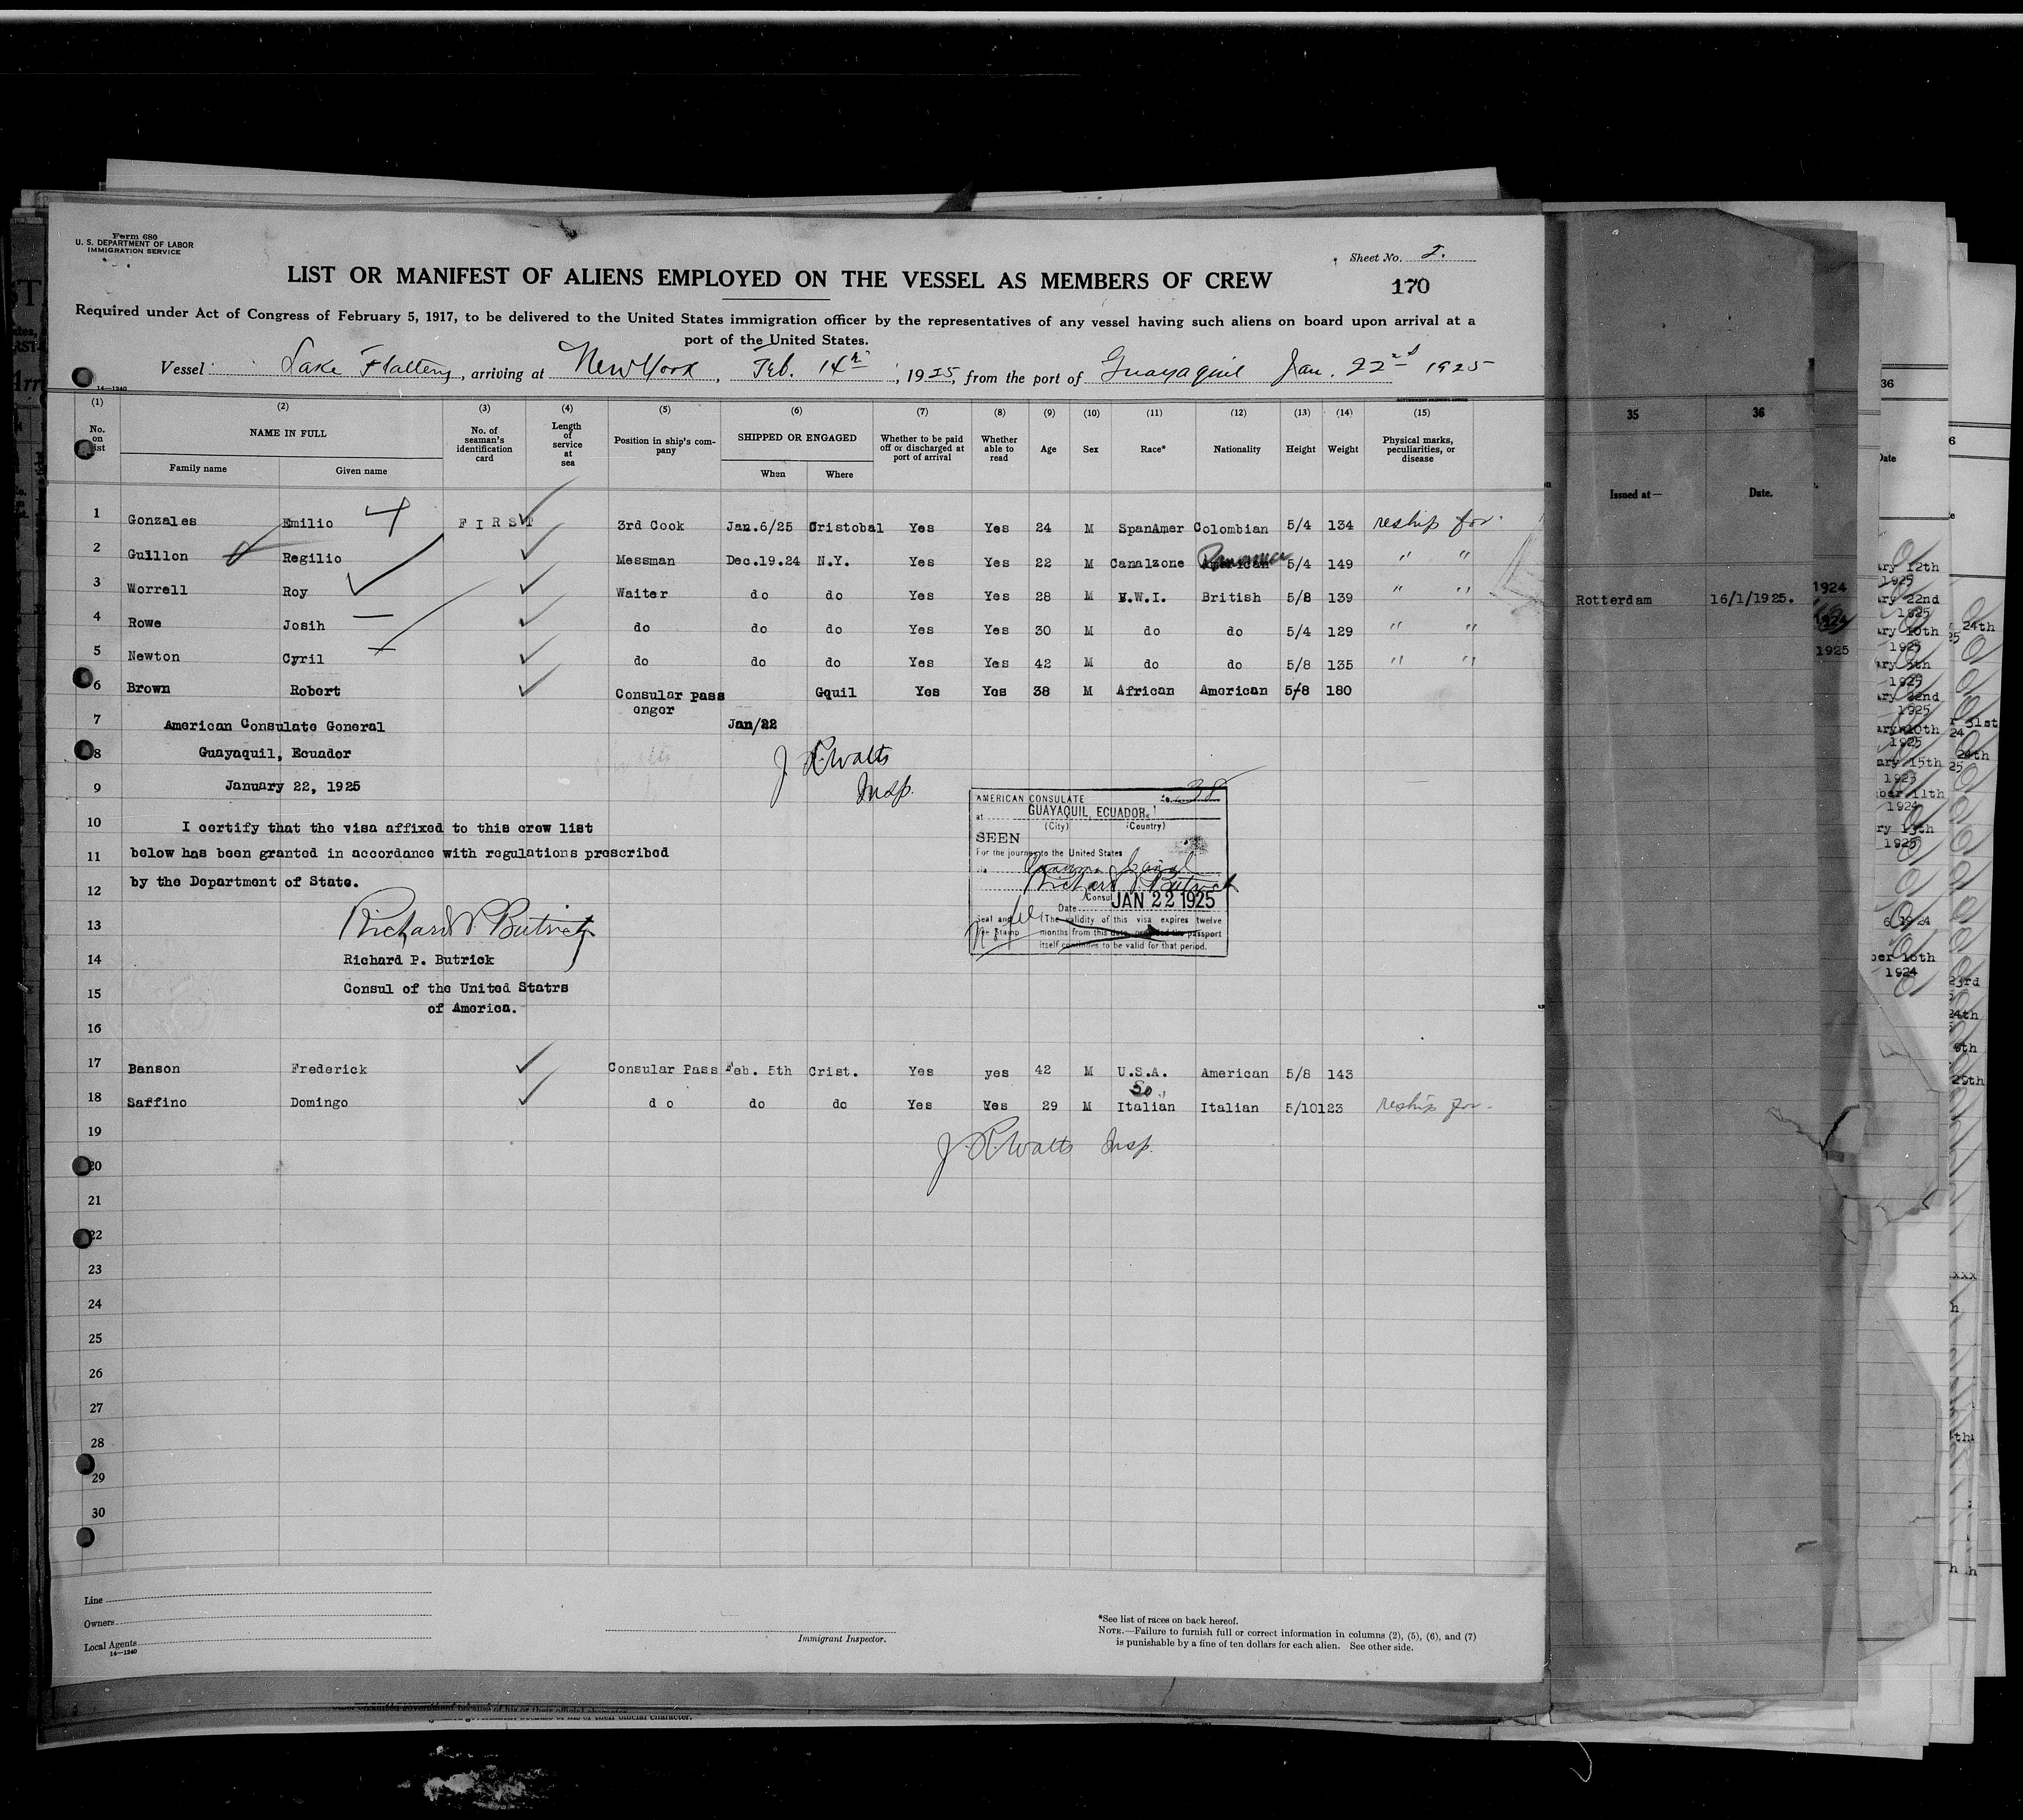 Form 680
U. S. DEPARTMENT OF LABOR
IMMIGRATION SERVICE
Sheet No. 2.
LIST OR MANIFEST OF ALIENS EMPLOYED ON THE VESSEL AS MEMBERS OF CREW
170
Required under Act of Congress of February 5, 1917, to be delivered to the United States immigration officer by the representatives of any vessel having such aliens on board upon arrival at a
port of the United States.
Vessel Lake Flattery, arriving at New York, Feb. 14th, 1925, from the port of Guayaquil Jan. 22nd 1925
14—1240
(1) (2) (3) (4) (5) (6) (7) (8) (9) (10) (11) (12) (13) (14) (15)
No. on list NAME IN FULL Family name Given name No. of seaman's identification card Length of service at sea Position in ship's company SHIPPED OR ENGAGED When Where Whether to be paid off or discharged at port of arrival Whether able to read Age Sex Race* Nationality Height Weight Physical marks, peculiarities, or disease
1 Gonzales Emilio FIRST 3rd Cook Jan.6/25 Cristobal Yes Yes 24 M SpanAmer Colombian 5/4 134 reship for.
2 Guillon Regilio Messman Dec.19.24 N.Y. Yes Yes 22 M Canalzone American Panama 5/4 149 " "
3 Worrell Roy Waiter do do Yes Yes 28 M B.W.I. British 5/8 139 " "
4 Rowe Josih do do do Yes Yes 30 M do do 5/4 129 " "
5 Newton Cyril do do do Yes Yes 42 M do do 5/8 135 " "
6 Brown Robert Consular pass Gquil Yes Yes 38 M African American 5-8 180
enger
7 American Consulate General Jan/22
8 Guayaquil, Ecuador
J R Watts
9 January 22, 1925
Insp.
10 I certify that the visa affixed to this crew list
11 below has been granted in accordance with regulations prescribed
12 by the Department of State.
13 Richard P. Butrick
14 Richard P. Butrick
15 Consul of the United Statrs
of America.
16
AMERICAN CONSULATE No. 38
at GUAYAQUIL, ECUADOR.
(City) (Country)
SEEN
For the journey to the United States
Richard P. Butrick
Consul
Date JAN 22 1925
Seal and Fee Stamp
(The validity of this visa expires twelve
months from this date, provided the passport
itself continues to be valid for that period.
17 Banson Frederick Consular Pass Feb. 5th Crist. Yes yes 42 M U.S.A. American 5/8 143
So
18 Saffino Domingo do do do Yes Yes 29 M Italian Italian 5/10 123 reship for.
19
J R Watts Insp.
20
21
22
23
24
25
26
27
28
29
30
Line
Owners
Local Agents
14—1240
Immigrant Inspector.
*See list of races on back hereof.
NOTE.—Failure to furnish full or correct information in columns (2), (5), (6), and (7)
is punishable by a fine of ten dollars for each alien. See other side.
35 36
Issued at— Date.
Rotterdam 16/1/1925.
1924
1925